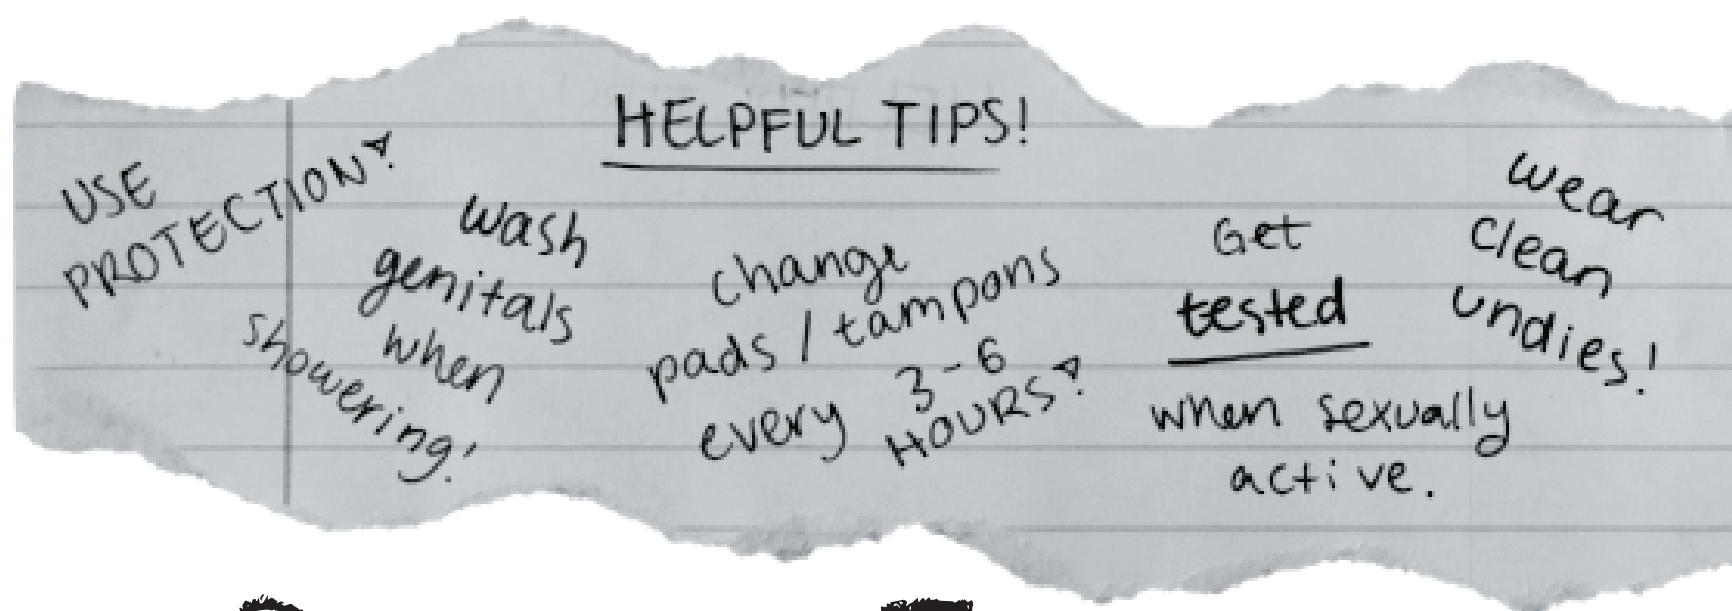 HELPFUL TIPS!
USE
PROTECTION!
wash
genitals
when
showering!
change
pads / tampons
every 3-6
HOURS!
Get
tested
when sexually
active.
wear
clean
undies!